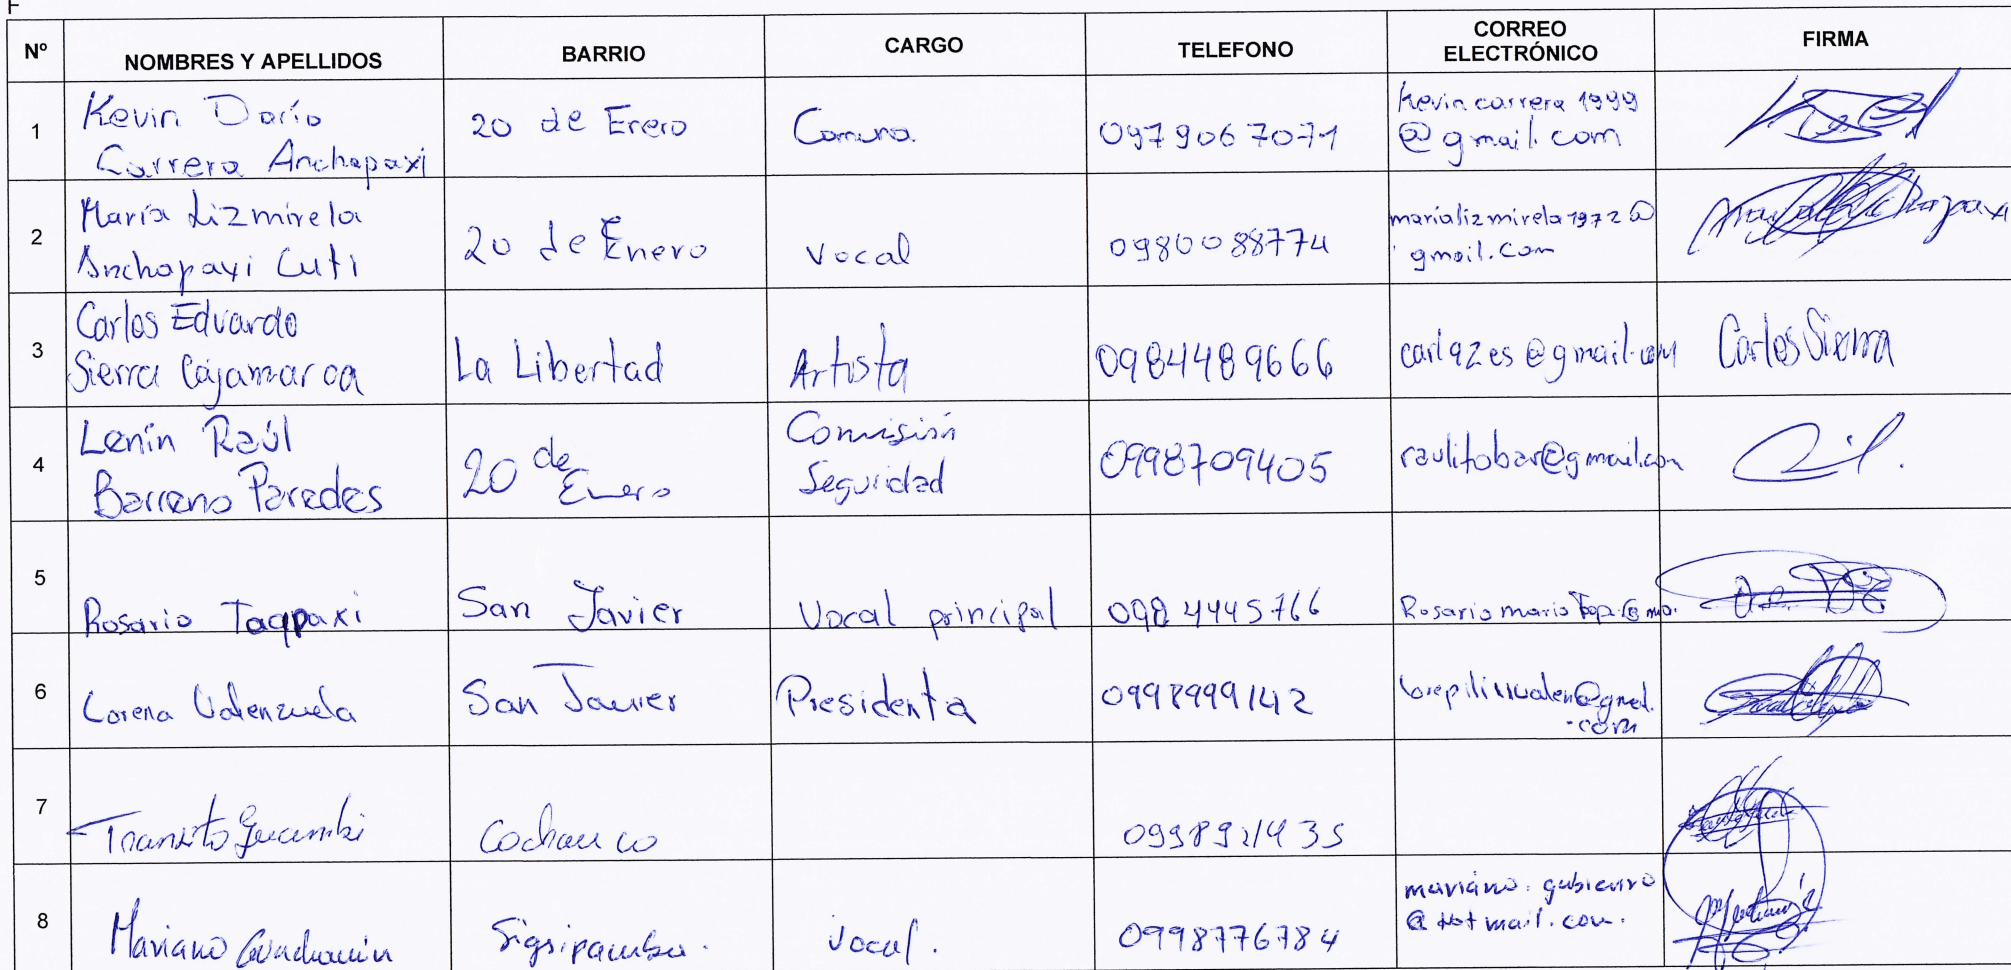 F
Nº NOMBRES Y APELLIDOS BARRIO CARGO TELEFONO CORREO ELECTRÓNICO FIRMA
1 Kevin Darío Carrera Anchapaxi 20 de Enero Comuna. 0979067071 kevincarrera1999@gmail.com
2 María Lizmirela Anchapaxi Cuti 20 de Enero Vocal 0980088774 maríalizmirela1972@gmail.com
3 Carlos Eduardo Sierra Cajamarca La Libertad Artista 0984489666 carlqzes@gmail.com Carlos Sierra
4 Lenín Raúl Barreno Paredes 20 de Enero Comisión Seguridad 0998709405 raulitobar@gmail.com
5 Rosario Tagpaxi San Javier Vocal principal 0984445766
6 Lorena Valenzuela San Javier Presidenta 0998999142
7 Transito 
8 Mariano Guachamín Sigsipamba. Vocal. 0998776784 @Hotmail.com.